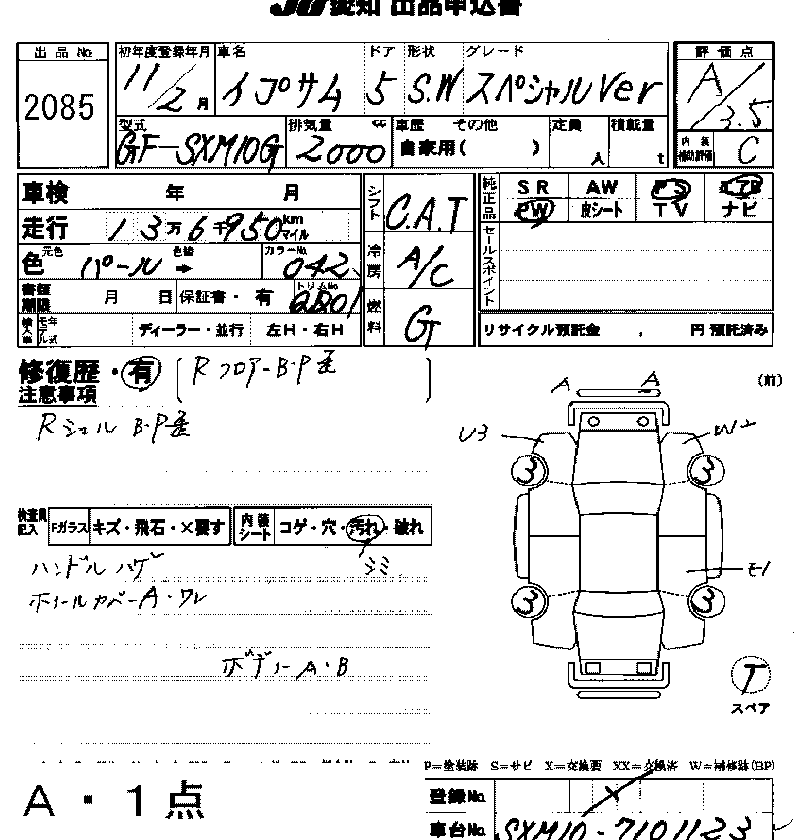 JU愛知 出品申込書
出品No. 2085
初年度登録年月 11/2月
車名 イプサム
ドア 5
形状 S.W
グレード スペシャルVer
評価点 A/3.5
型式 GF-SXM10G
排気量 2000 cc
車歴 その他
自家用( )
定員 人
積載量 t
内装補助評価 C
車検 年 月
走行 13万6千950km マイル
色 元色 パール 色替 → カラーNo. 042
書類期限 月 日
保証書・有
トリムNo.
輸入車 モデル年式 ディーラー・並行 左H・右H
シフト C.A.T
冷房 A/C
燃料 G
純正品 SR AW PS エアB
PW 皮シート TV ナビ
セールスポイント
リサイクル預託金 , 円 預託済み
修復歴・有 〔RフロアーB・P歪 〕
注意事項
Rシェル B・P歪
検査員記入 Fガラス キズ・飛石・×要す
内装シート コゲ・穴・汚れ・破れ
シミ
ハンドル ハゲ
ホイールカバーA・ワレ
ボデーA・B
A A
(前)
U3
W2
3 3
E1
3 3
T
スペア
P=塗装跡 S=サビ X=交換要 XX=交換済 W=補修跡(BP)
A・1点
登録No.
車台No. SXM10-7101123